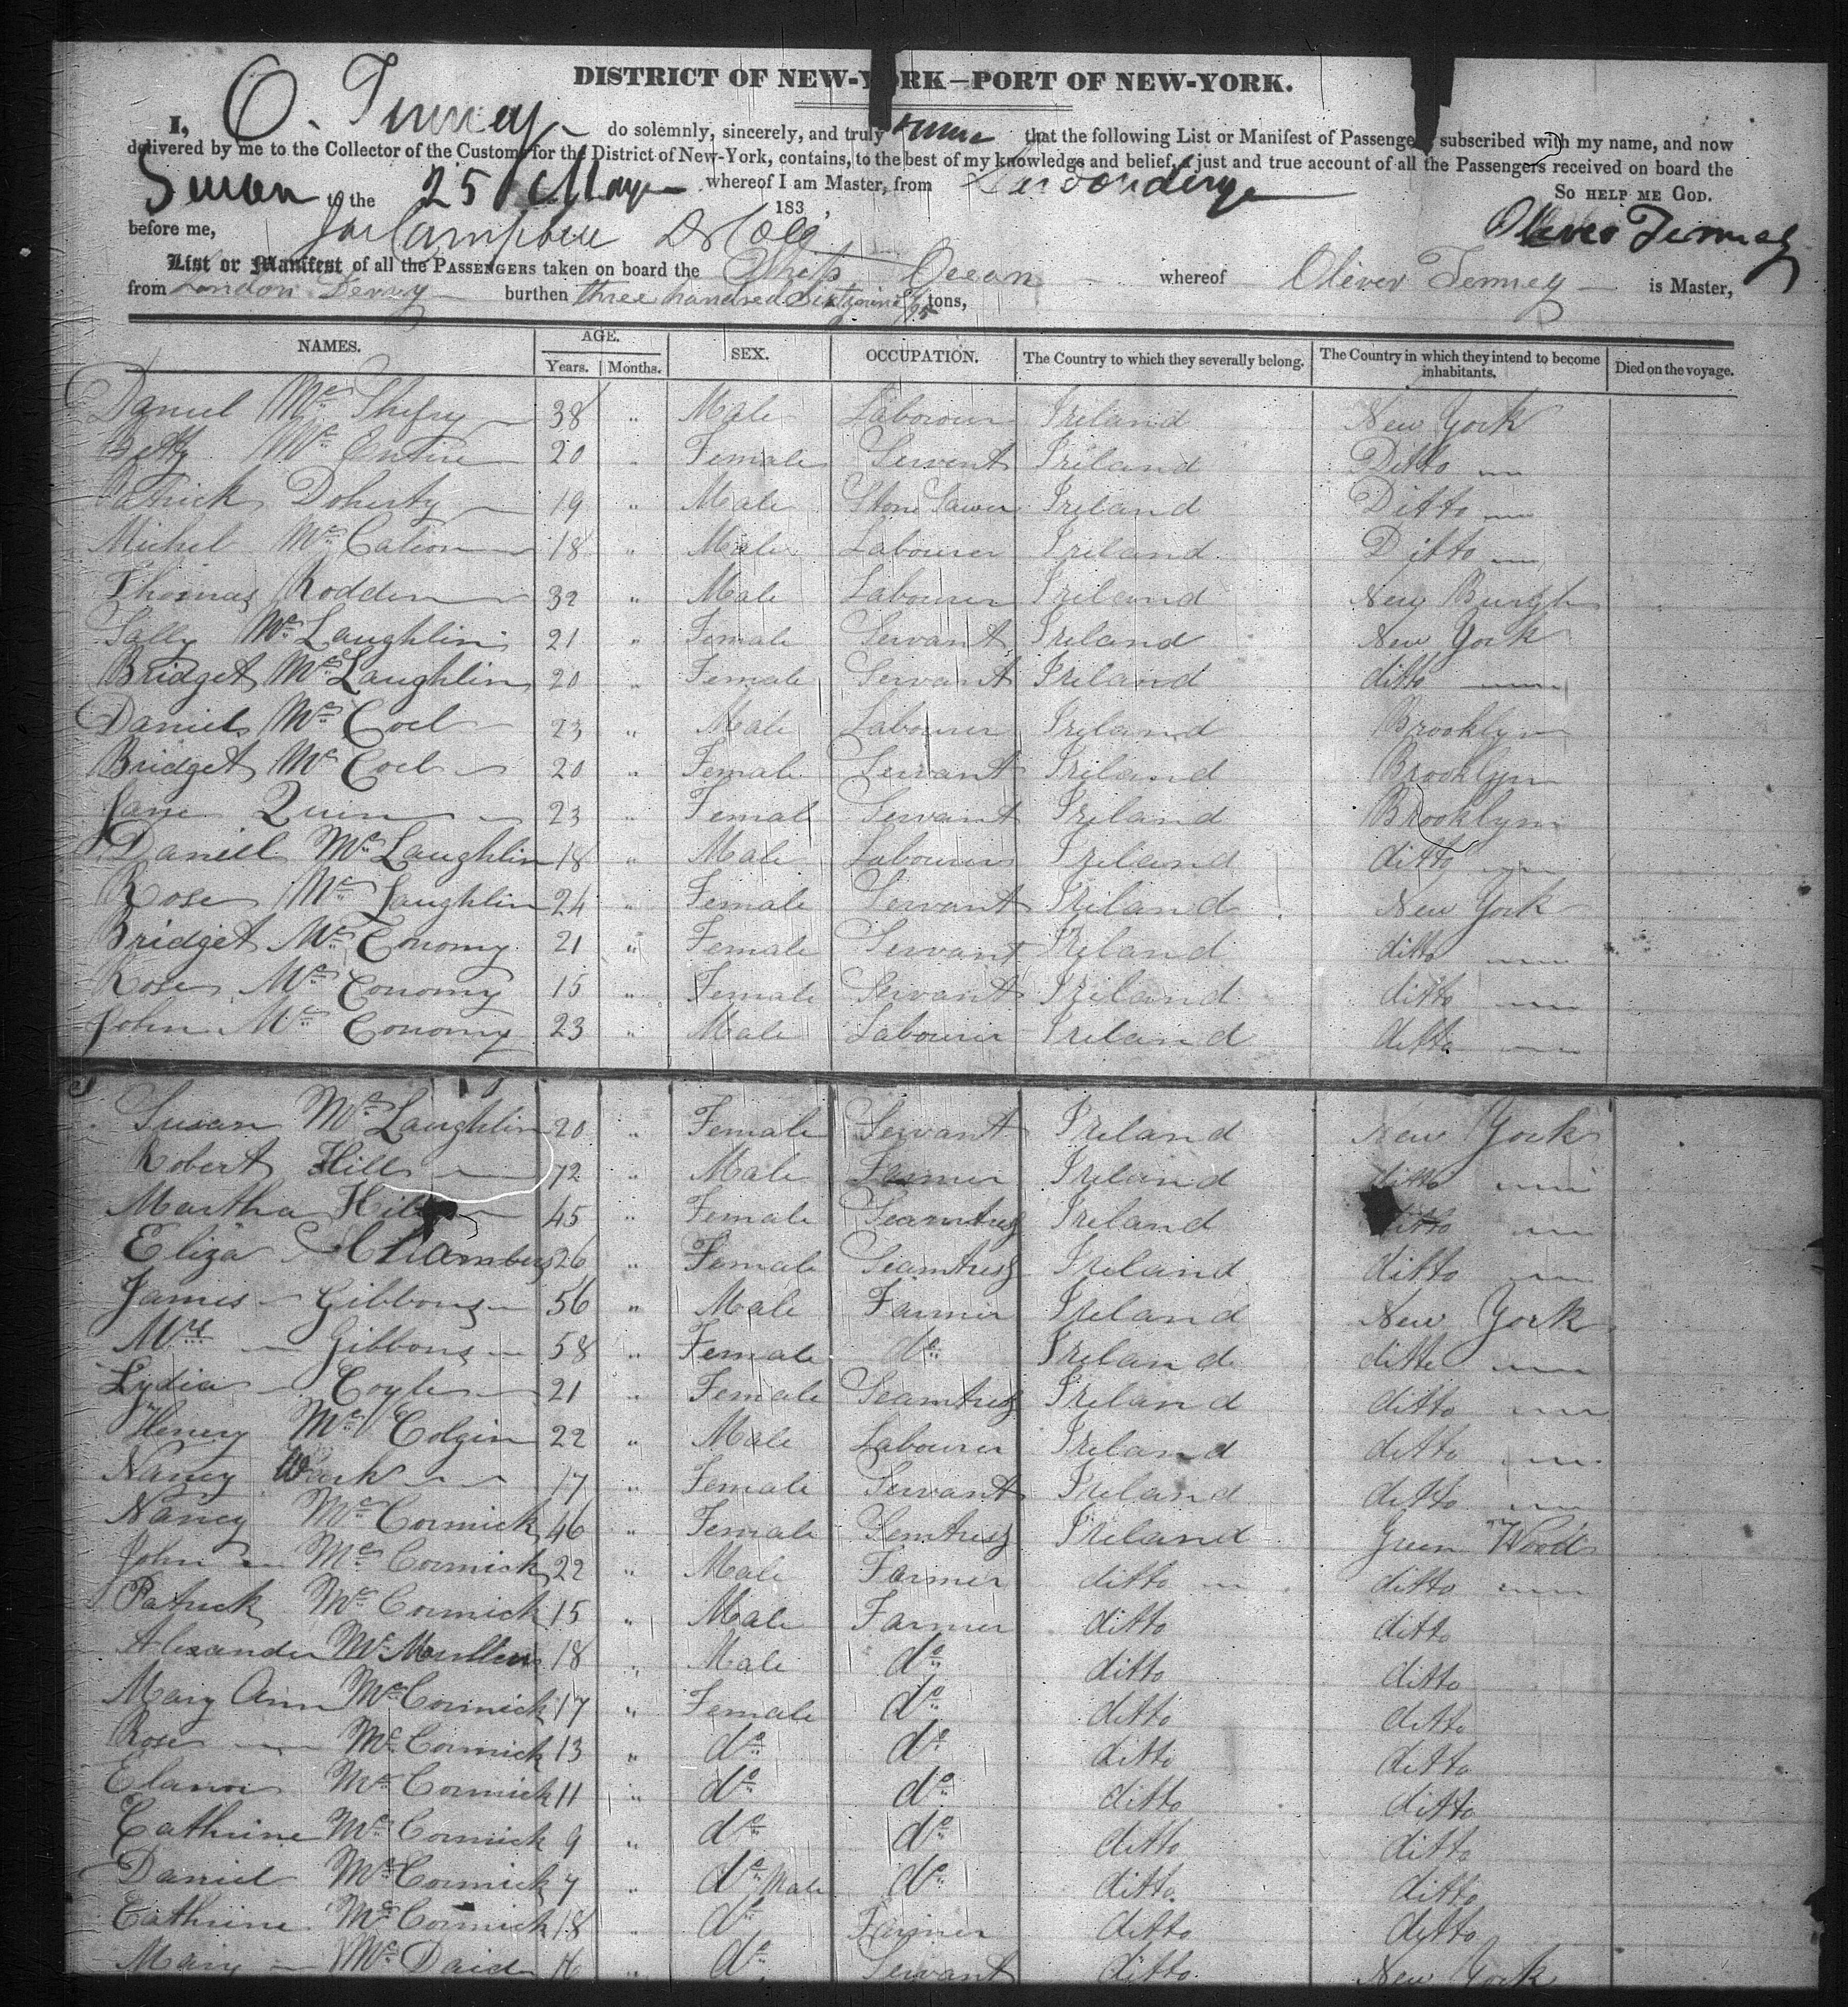 DISTRICT OF NEW-YORK—PORT OF NEW-YORK.
I, O. Tenney do solemnly, sincerely, and truly that the following List or Manifest of Passengers subscribed with my name, and now
delivered by me to the Collector of the Customs for the District of New-York, contains, to the best of my knowledge and belief, a just and true account of all the Passengers received on board the
whereof I am Master, from So HELP ME GOD.
to the 25 May 183
before me, Campbell Oliver Tenney
List or Manifest of all the PASSENGERS taken on board the Ship Ocean whereof Oliver Tenney is Master,
from London Derry burthen three hundred Sixty nine tons,
NAMES. AGE. Years. Months. SEX. OCCUPATION. The Country to which they severally belong. The Country in which they intend to become inhabitants. Died on the voyage.
Daniel Mc 38 " Male Labourer Ireland New York
Betty Mc Entire 20 " Female Servent Ireland Ditto
Patrick Doherty 19 " Male Stone Ireland Ditto
Michel Mc Calion 18 " Male Labourer Ireland Ditto
Thomas Rodden 32 " Male Labourer Ireland New Burgh
Sally Mc Laughlin 21 " Female Servant Ireland New York
Bridget Mc Laughlin 20 " Female Servant Ireland ditto
Daniel Mc Coel 23 " Male Labourer Ireland Brooklyn
Bridget Mc Coel 20 " Female Servant Ireland Brooklyn
Jane Quin 23 " Female Servant Ireland Brooklyn
Daniell Mc Laughlin 18 " Male Labourer Ireland ditto
Rose Mc Laughlin 24 " Female Servant Ireland New York
Bridget Mc Conomy 21 " Female Servant Ireland ditto
Rose Mc Conomy 15 " Female Servant Ireland ditto
John Mc Conomy 23 " Male Labourer Ireland ditto
Susan Mc Laughlin 20 " Female Servant Ireland New York
Robert Hill 72 " Male Farmer Ireland ditto
Martha Hill 45 " Female Seamtress Ireland ditto
Eliza Chambers 26 " Female Seamtress Ireland ditto
James Gibbons 56 " Male Farmer Ireland New York
Mrs Gibbons 58 " Female do Ireland ditto
Lydia Coyle 21 " Female Seamtress Ireland ditto
Henery Mc Colgin 22 " Male Labourer Ireland ditto
Nancy Wark 17 " Female Servant Ireland ditto
Nancy Mc Cormick 46 " Female Semtress Ireland Green Wood
John Mc Cormick 22 " Male Farmer ditto ditto
Patrick Mc Cormick 15 " Male Farmer ditto ditto
Alexander Mc Mullen 18 " Male do ditto ditto
Mary Ann Mc Cormick 17 " Female do ditto ditto
Rose Mc Cormick 13 " do do ditto ditto
Elanor Mc Cormick 11 " do do ditto ditto
Cathrine Mc Cormick 9 " do do ditto ditto
Daniel Mc Cormick 7 " do Male do ditto ditto
Cathrine Mc Cormick 18 " do Farmer ditto ditto
Mary Mc Daid " do Servant ditto New York